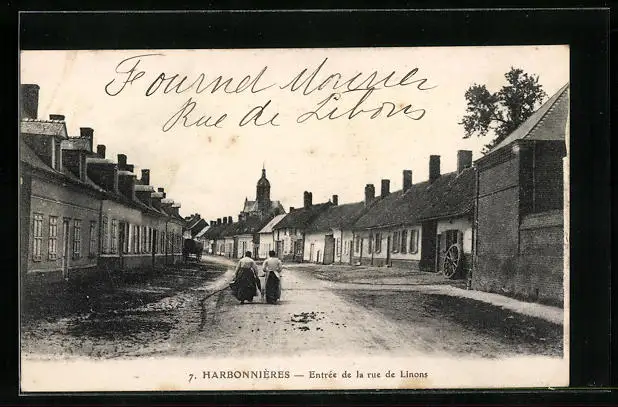 Fournel Meunier
Rue de Libons
7. HARBONNIÈRES — Entrée de la rue de Linons